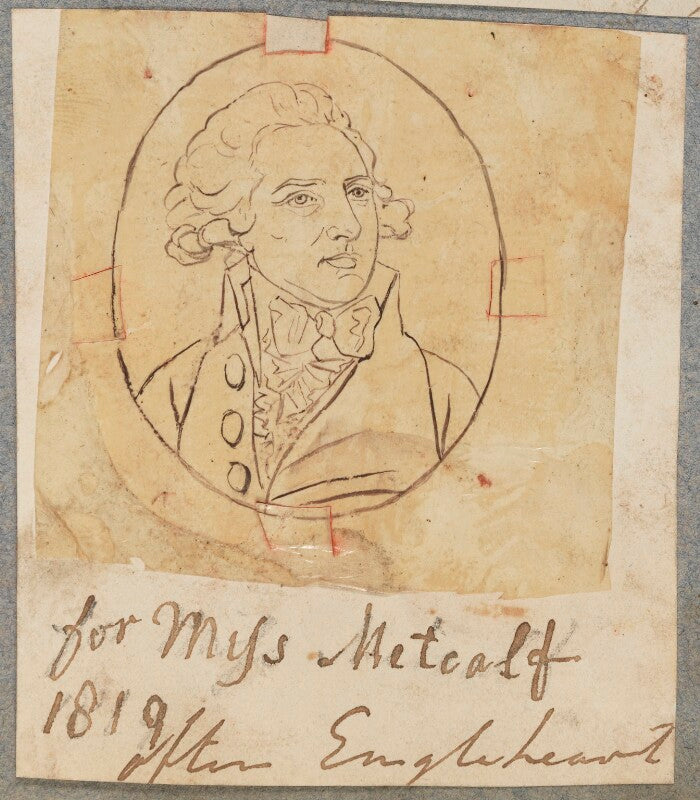 for Miss Metcalf
1819
after Engleheart